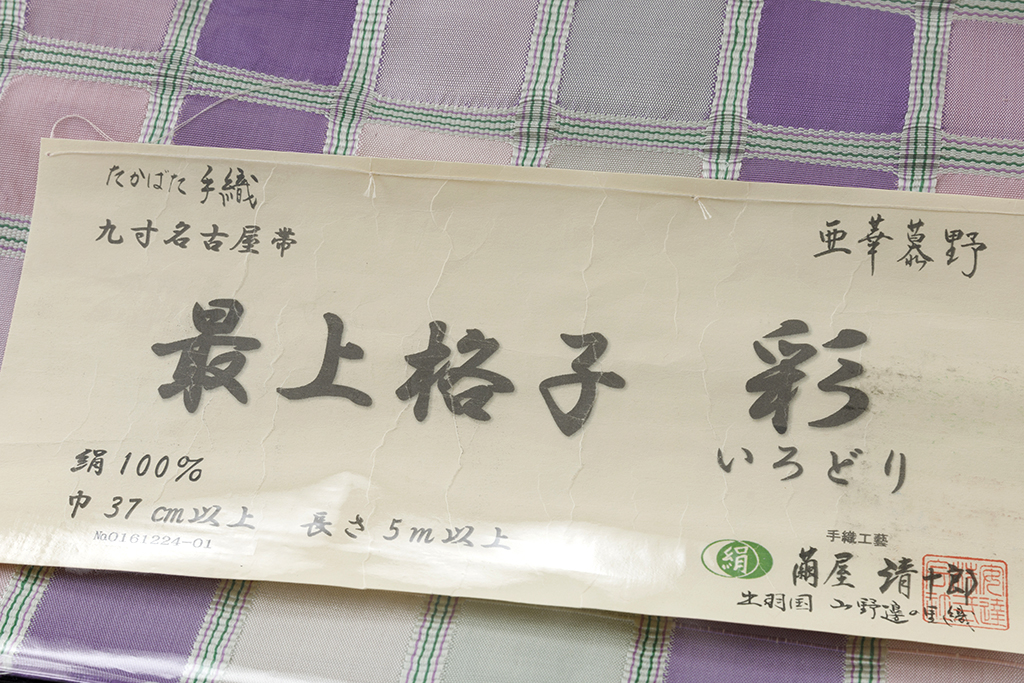 たかばた 手織
九寸名古屋帯
亜華慕野
最上格子 彩
いろどり
絹100%
巾 37cm以上 長さ5m以上
№0161224-01
絹
手織工藝
繭屋 清十郎
出羽国 山野邊の里織